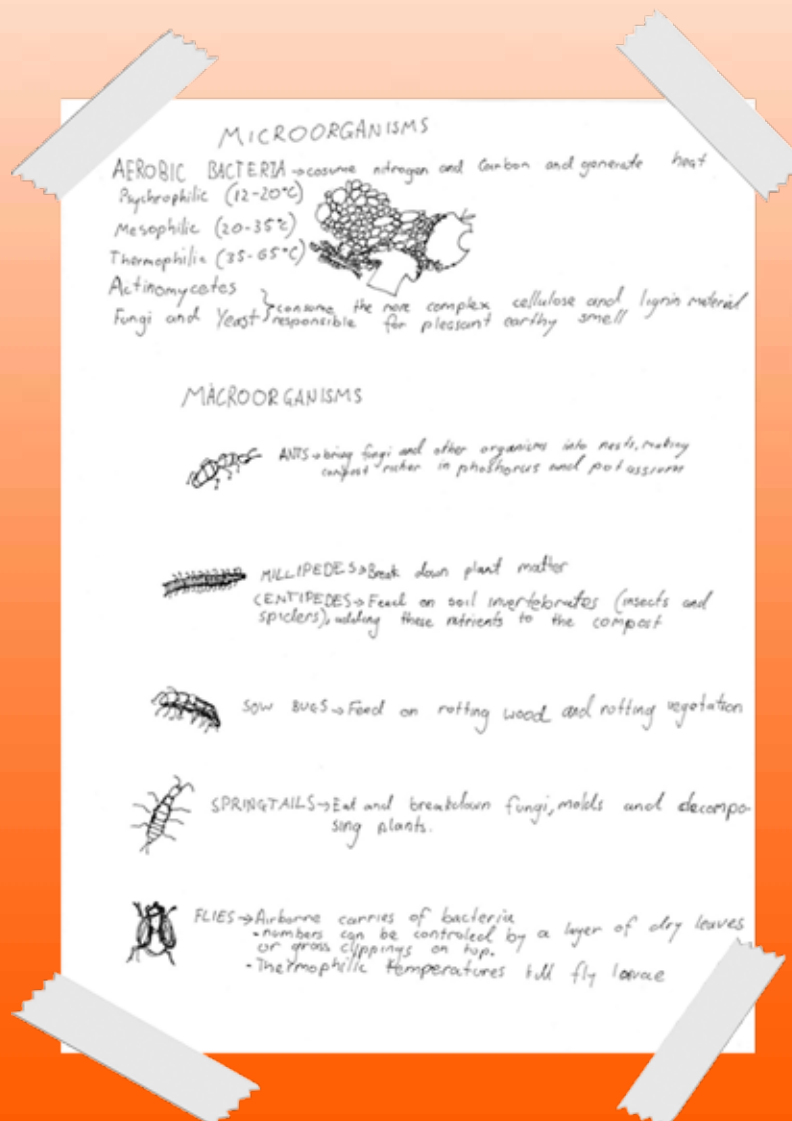 MICROORGANISMS
AEROBIC BACTERIA → cosume nitrogen and Carbon and generate heat
Psychrophilic (12-20°C)
Mesophilic (20-35°C)
Thermophilic (35-65°C)
Actinomycetes
Fungi and Yeast } consume the more complex cellulose and lignin material
responsible for pleasant earthy smell
MACROORGANISMS
ANTS → bring fungi and other organisms into nests, making
compost richer in phoshorus and potassium
MILLIPEDES → Break down plant matter
CENTIPEDES → Feed on soil invertebrates (insects and
spiders), adding these nutrients to the compost
SOW BUGS → Feed on rotting wood and rotting vegetation
SPRINGTAILS → Eat and breakdown fungi, molds and decompo-
sing plants.
FLIES → Airborne carries of bacteria
• numbers can be controled by a layer of dry leaves
or grass clippings on top.
• Thermophilic temperatures kill fly larvae